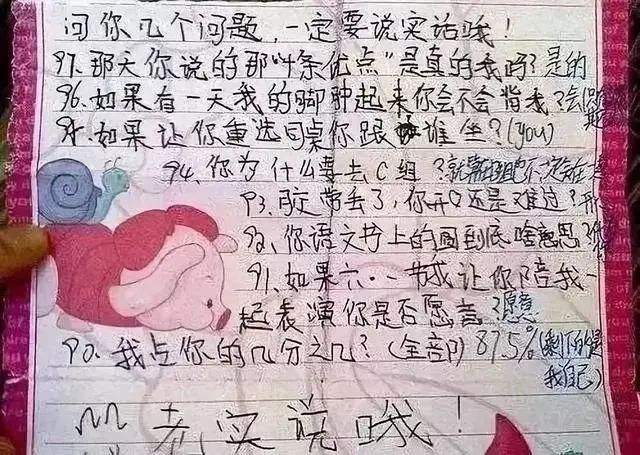 问你几个问题，一定要说实话哦！
97.那天你说的那"条优点"是真的我吗？是的
96.如果有一天我的脚肿起来你会不会背我？会
95.如果让你重选同桌你跟谁坐？(you)
94.你为什么要去C组？
93.胶带丢了，你开心还是难过？
92.你语文书上的圈到底啥意思？
91.如果六·一节我让你陪我一
起表演你是否愿意？愿意
90.我占你的几分之几？(全部) 87.5%(剩下的是
我自己)
老实说哦！